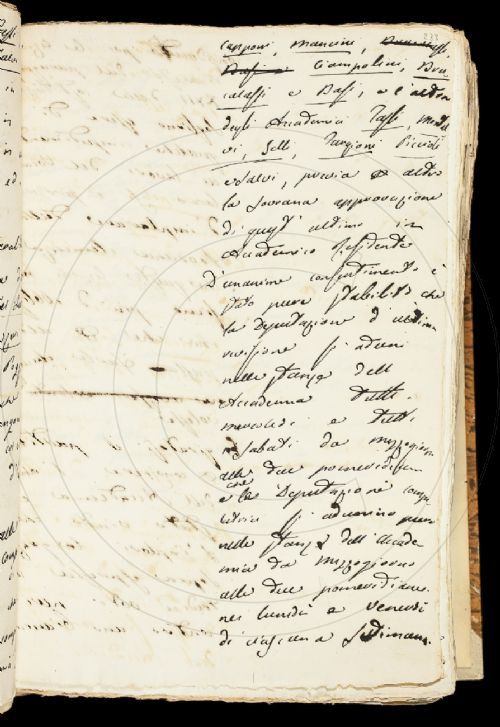 Capponi, Mancini,
Ciampolini, Bru
calassi e Bassi, e l'altra
degli Accademici Tassi, Model
vi, Selli, Targioni Piccioli
e Salvi, previa altro
la Sovrana approvazione
di quest ultimo in
Accademico Residente
D'unanime consentimento è
stato pure stabilito che
la Deputazione d' ultima
revisione si aduni
nelle stanze dell
Accademia tutti i
mercoledì e tutti
i Sabati da mezzogiorno
alle due pomeridiane
e che le Deputazioni compi
latrici si adunino pure
nelle stanze dell' Accade
mia da mezzogiorno
alle due pomeridiane
nei lunedì e venerdì
di ciascuna Settimana.